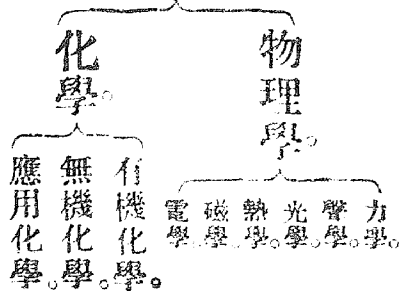 物理學。
力學。
聲學。
光學。
熱學。
磁學。
電學。
化學。
有機化學。
無機化學。
應用化學。